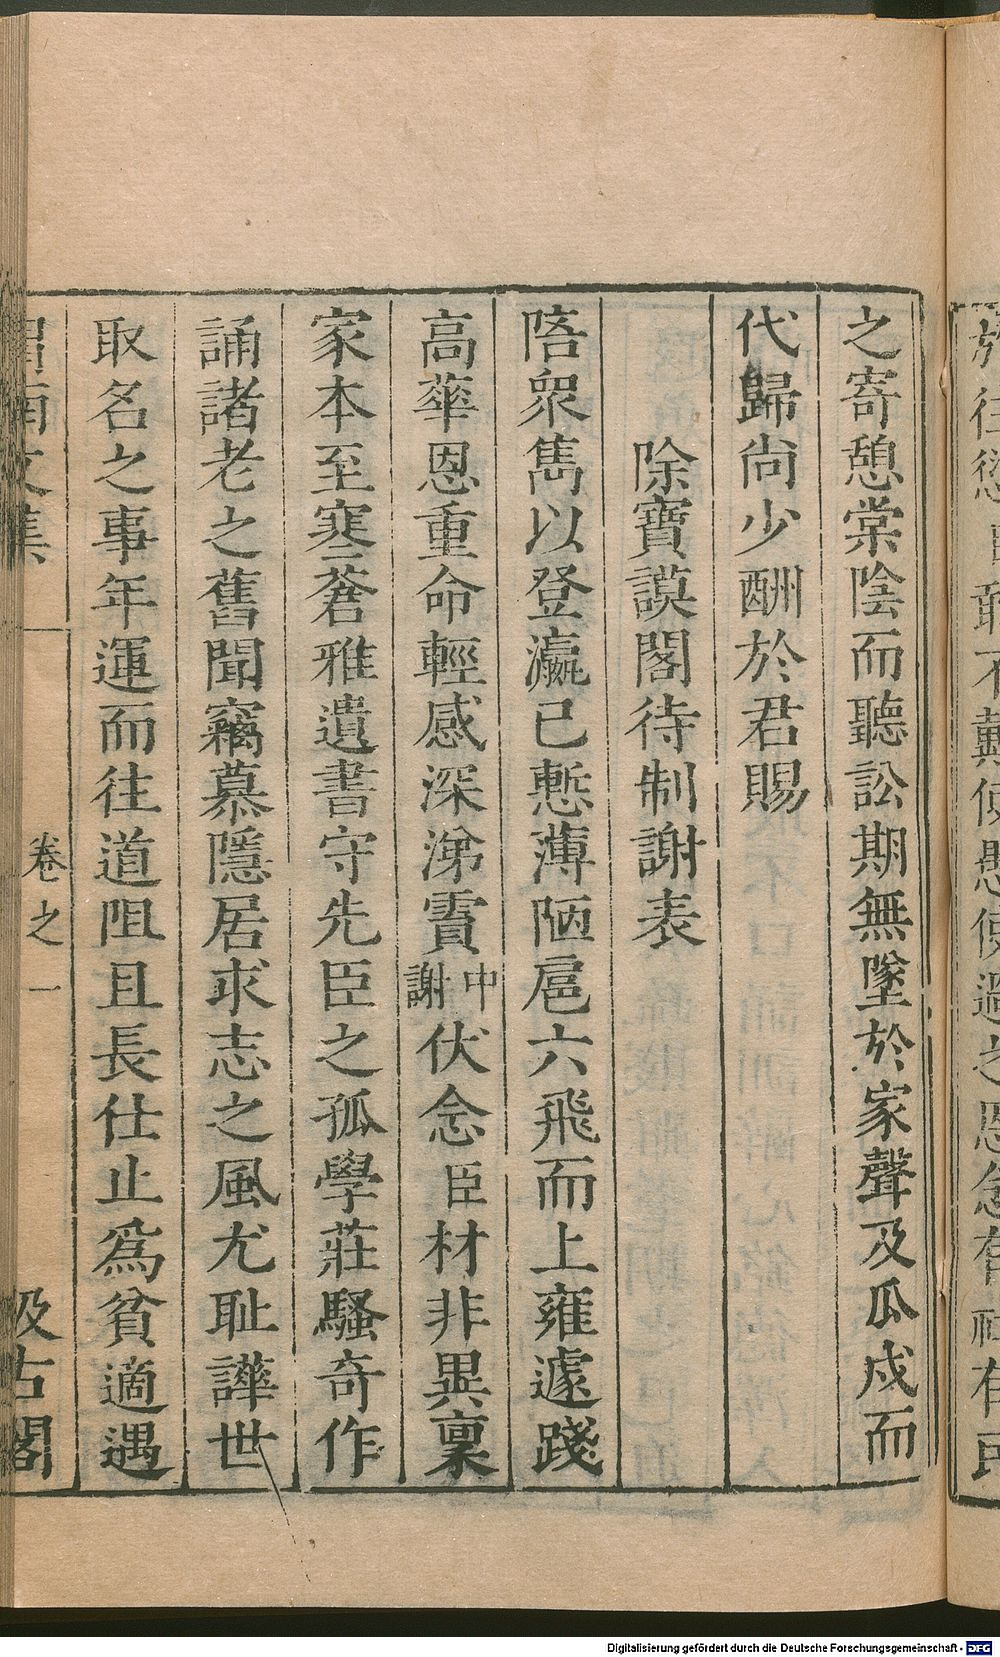 之寄憩棠陰而聽訟期無墜於家聲及瓜戍而
代歸尚少酬於君賜
除寶謨閣待制謝表
㗖眾雋以登瀛已慙薄陋扈六飛而上雍遽踐
高華恩重命輕感深涕霣中謝伏念臣材非異稟
家本至寒蒼雅遺書守先臣之孤學莊騷奇作
誦諸老之舊聞竊慕隱居求志之風尤耻譁世
取名之事年運而往道阻且長仕止爲貧適遇
渭南文集 卷之一 汲古閣
Digitalisierung gefördert durch die Deutsche Forschungsgemeinschaft - DFG